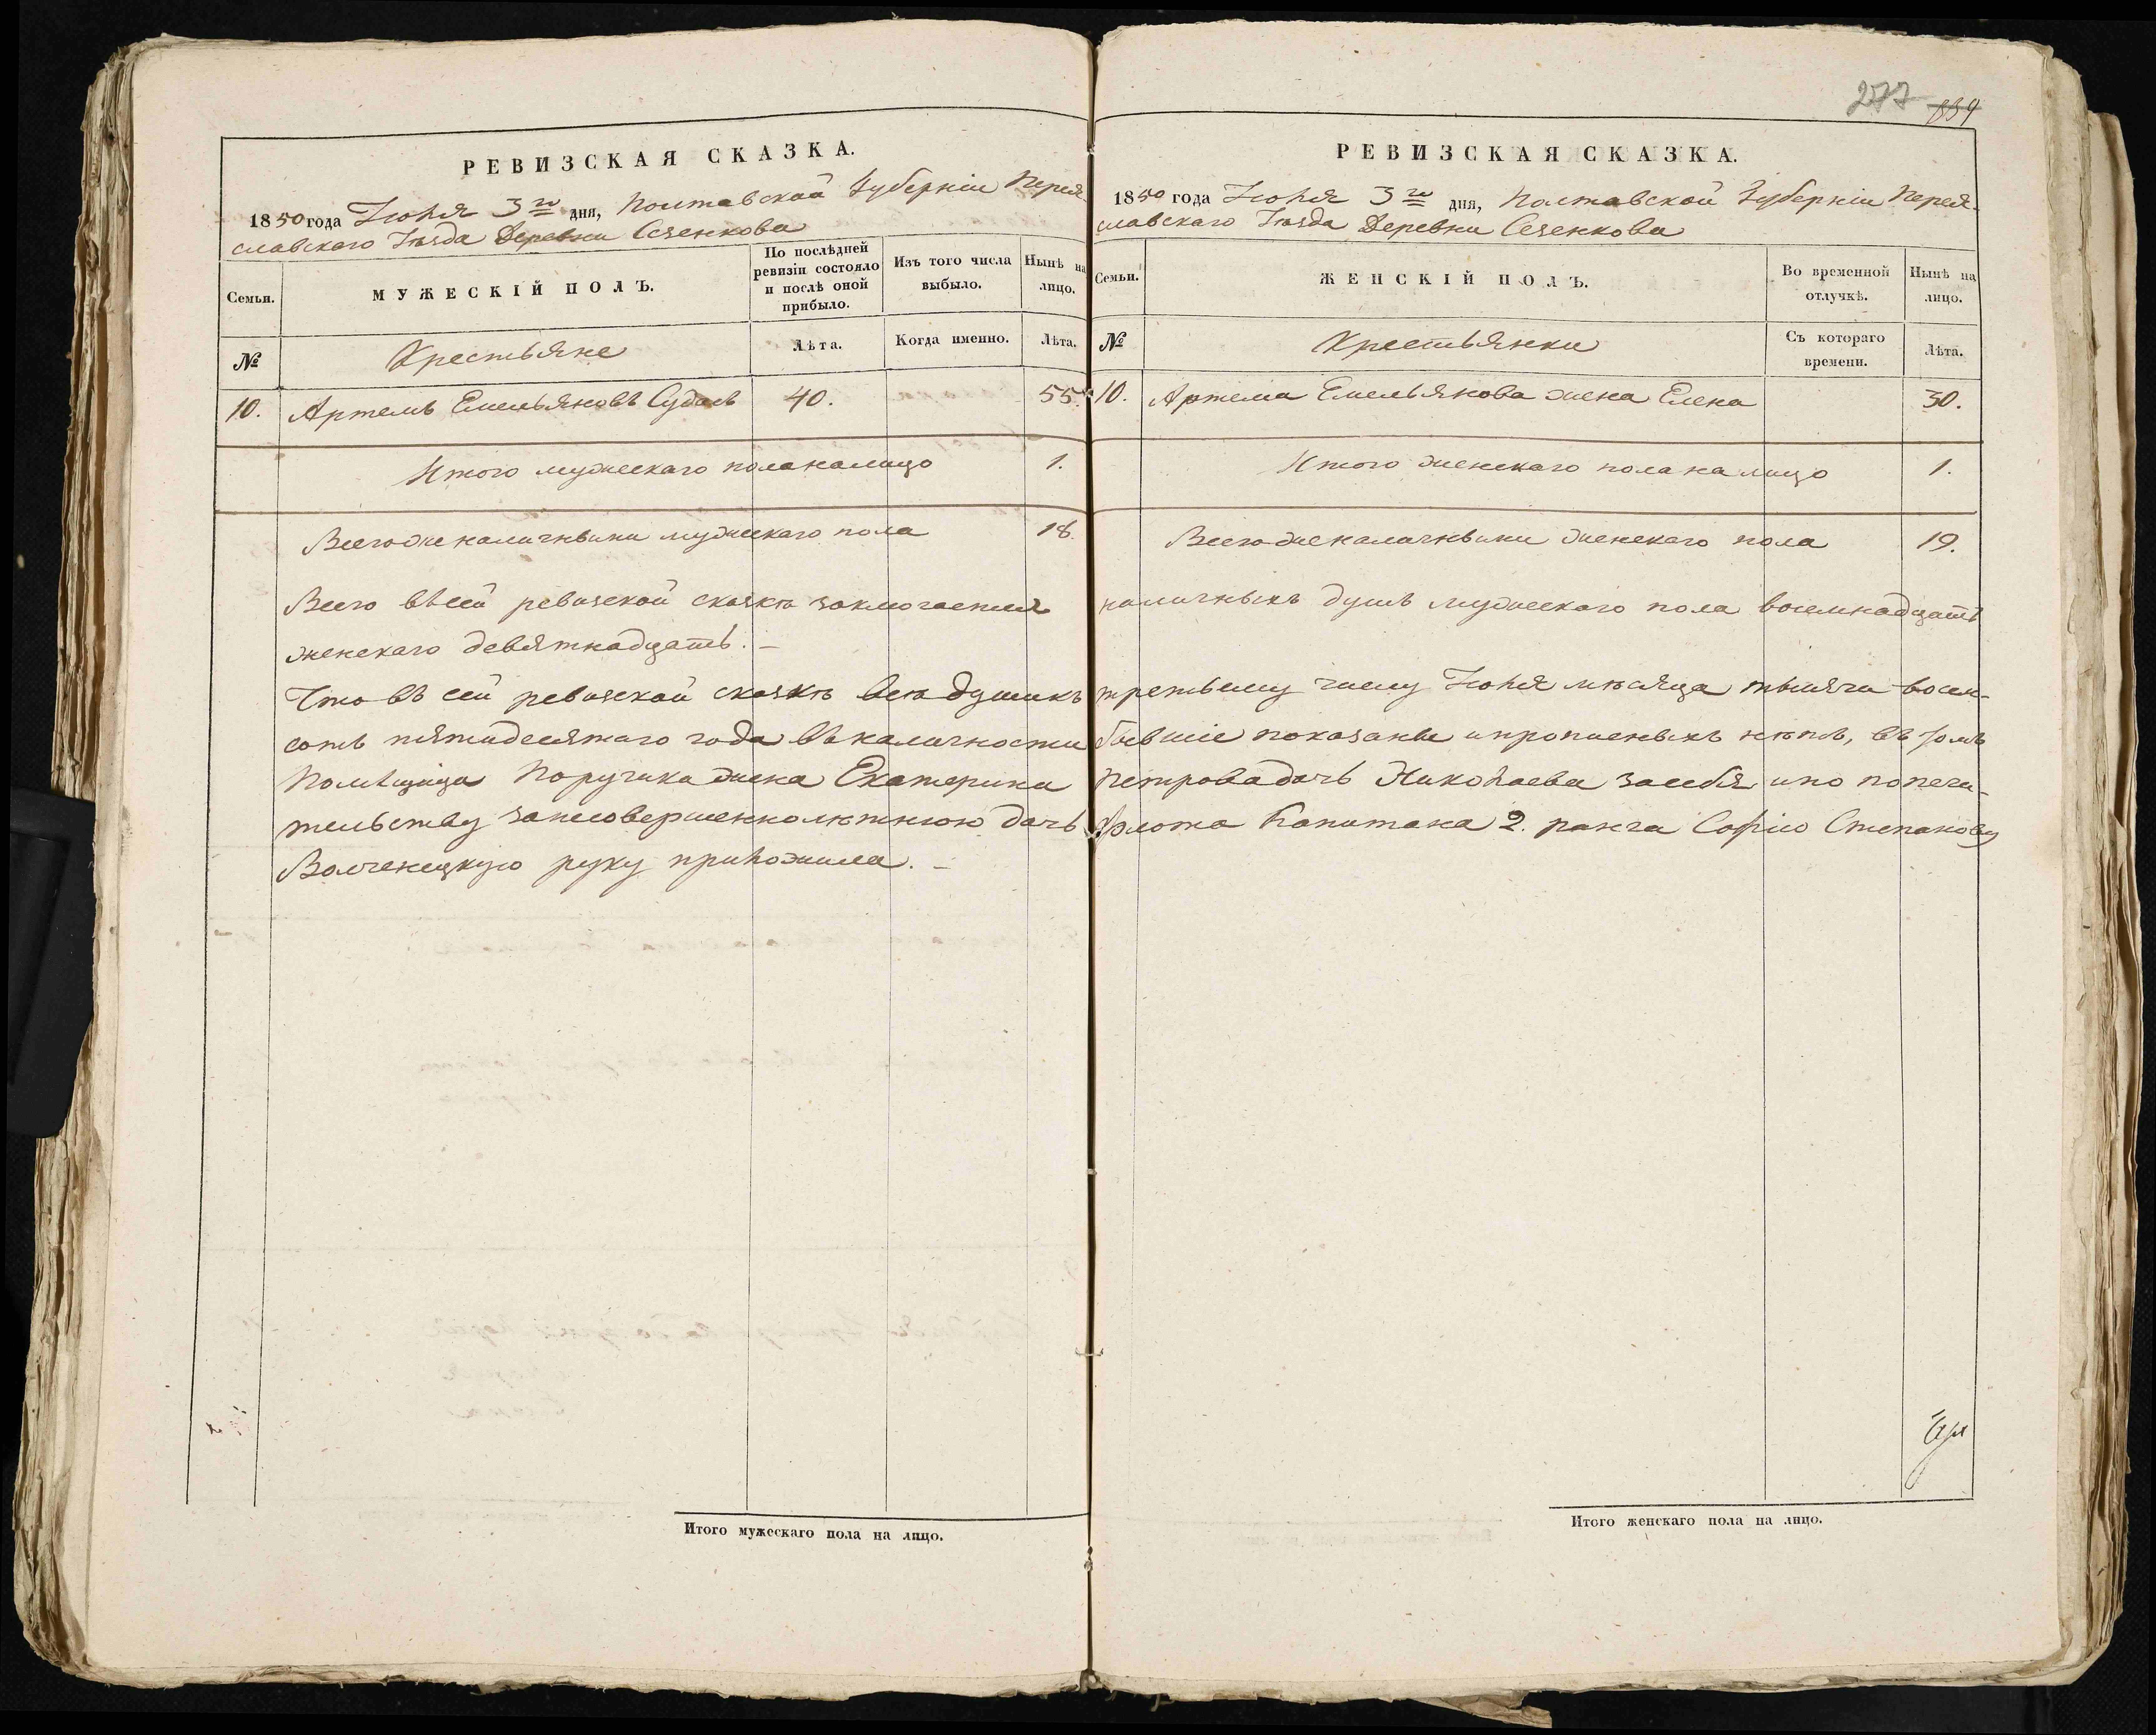 277 339
РЕВИЗСКАЯ СКАЗКА.
1850 года Іюля 3го дня, Полтавской Губерніи Перея-
славскаго Уѣзда Деревни Сезенкова
Семьи.
МУЖЕСКІЙ ПОЛЪ.
По послѣдней ревизіи состояло и послѣ оной прибыло.
Изъ того числа выбыло.
Нынѣ на лицо.
№
Крестьяне
Лѣта.
Когда именно.
Лѣта.
10. Артемъ Емельяновъ Судаев 40. 55.
Итого мужескаго пола налицо 1.
Всегоже наличными мужескаго пола 18.
РЕВИЗСКАЯ СКАЗКА.
1850 года Іюля 3го дня, Полтавской Губерніи Перея-
славскаго Уѣзда Деревни Сезенкова
Семьи.
ЖЕНСКІЙ ПОЛЪ.
Во временной отлучкѣ.
Нынѣ на лицо.
№
Крестьянки
Съ котораго времени.
Лѣта.
10. Артема Емельянова жена Елена 30.
Итого женскаго пола на лицо 1.
Всегоже наличными женскаго пола 19.
Всего въ сей ревизской сказкѣ заключается наличныхъ душъ мужескаго пола восемнадцать
женскаго девятнадцать. —
Что въ сей ревизской сказкѣ всѣ души къ третьему числу Іюля мѣсяца тысяча восем-
сотъ пятидесятаго года въ наличности бывшіе показаны и прописныхъ нѣтъ, въ томъ
Помѣщица Поручика жена Екатерина Петрова дочь Николаева за себя и по попечи-
тельству за несовершеннолѣтнюю дочь флота Капитана 2. ранга Софію Степанову
Волченецкую руку приложила. —
Итого мужескаго пола на лицо.
Итого женскаго пола на лицо.